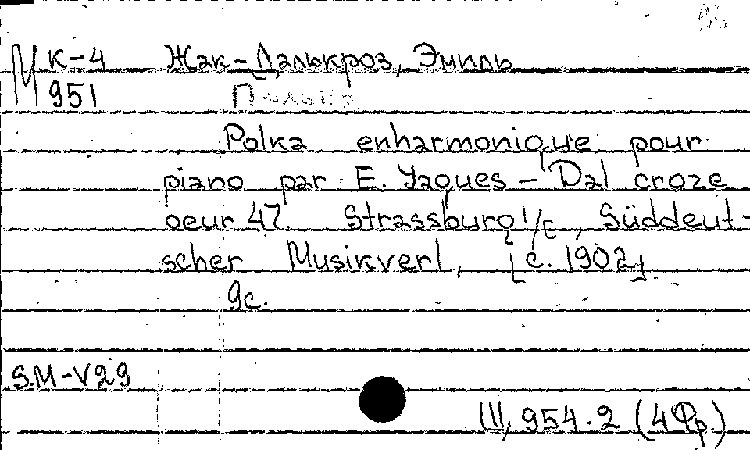 М К-4 Жак-Далькроз, Эмиль
951 Полька
Polka enharmonique pour
piano par E. Yaques - Dal croze
oeur 47. Strassburg i/E, Süddeut-
scher Musikverl, [c. 1902]
9с.
SM-V29
III, 954.2 (4Фр.)